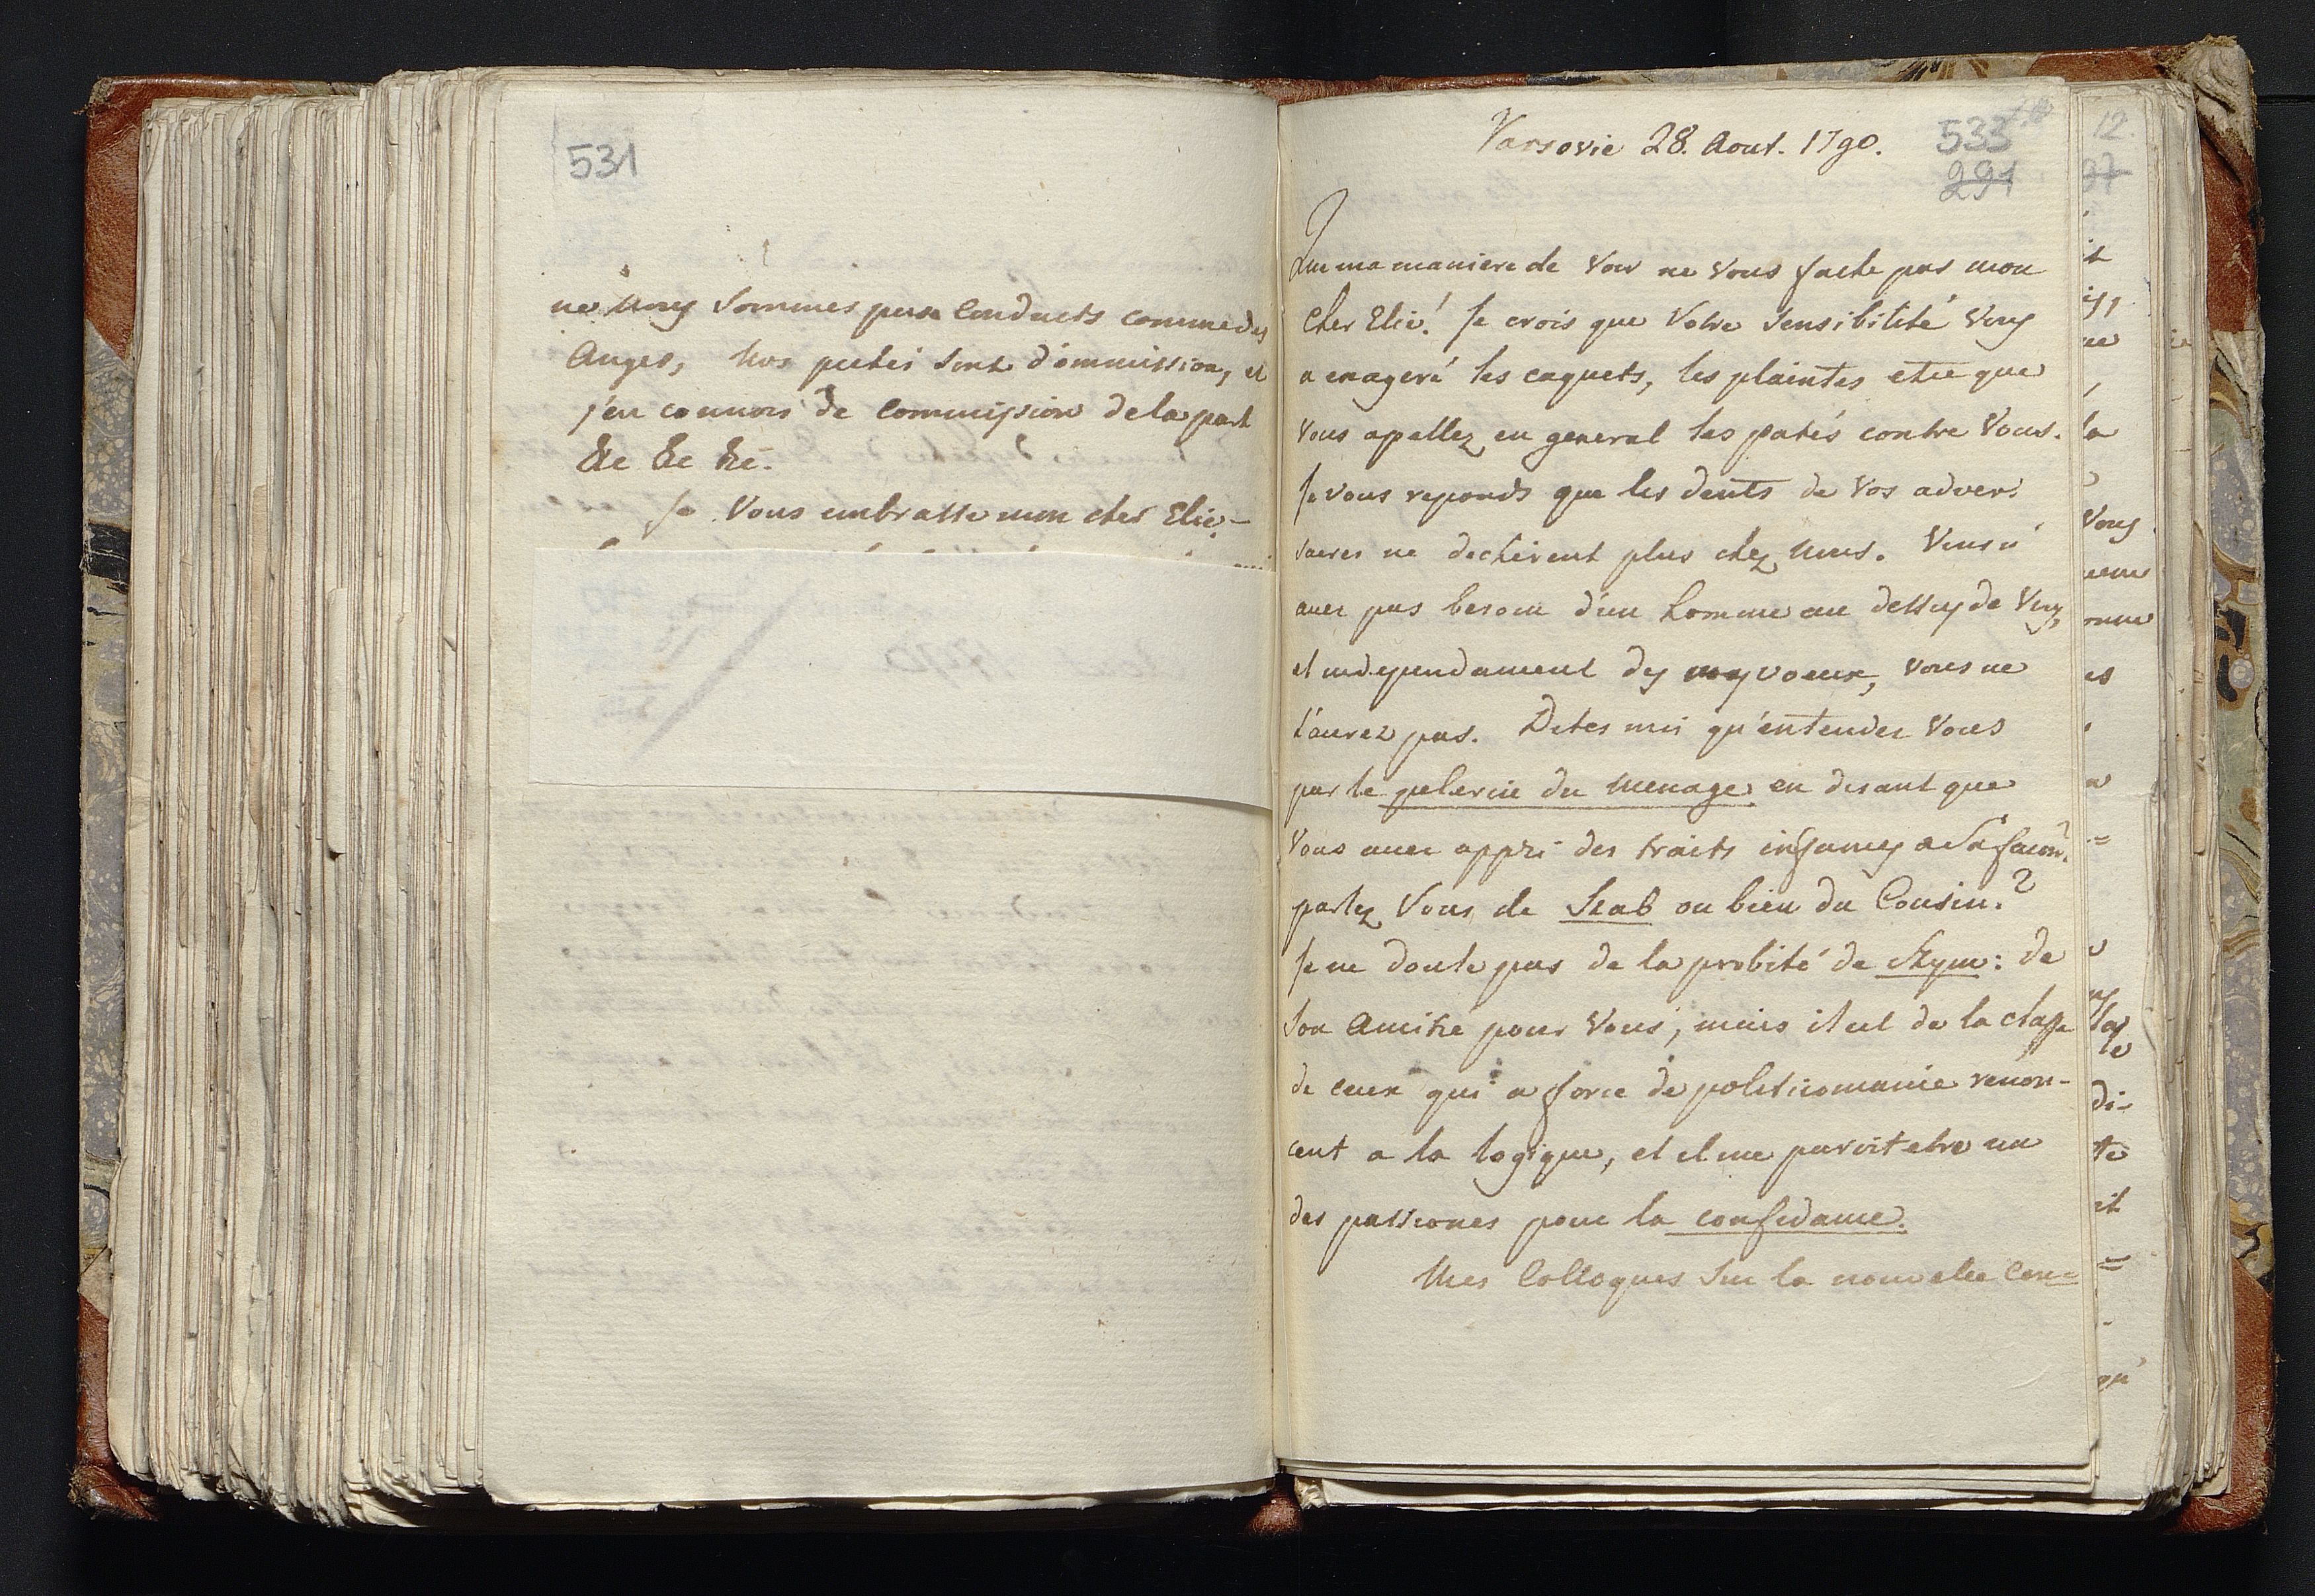 531
ne nous sommes pas conduits comme des
Anges, Nos pechés sont d'ommission, et
j'en connois de commission de la part
Etc Etc Etc.
Je Vous embrasse mon cher Elie -
Varsovie 28. Aout. 1790.
533
291
Que ma maniere de voir ne Vous fache pas mon
Cher Elie! Je crois que Votre sensibilité Vous
a exageré les caquets, les plaintes et ce que
Vous apellez en general les patés contre Vous.
Je vous reponds que les dents de Vos adver:
saires ne dechirent plus chez nous. Vous n'
avez pas besoin d'un homme au dessus de Vous,
et independament des mes voeux, vous ne
l'aurez pas. Dites moi qu'entendez Vous
par le pelerin du menage en disant que
Vous avez appri des traits infames a sa facon?
parlez Vous de Szab ou bien du Cousin?
Je ne doute pas de la probité de Szym: de
son Amitié pour Vous, mais il est de la classe
de ceux qui a force de politicomanie renon-
cent a la logique, et il me paroit etre un
des passionés pour la confidance.
Mes Colloques sur la nouvelle con=
12.
37
la
Vous
di-